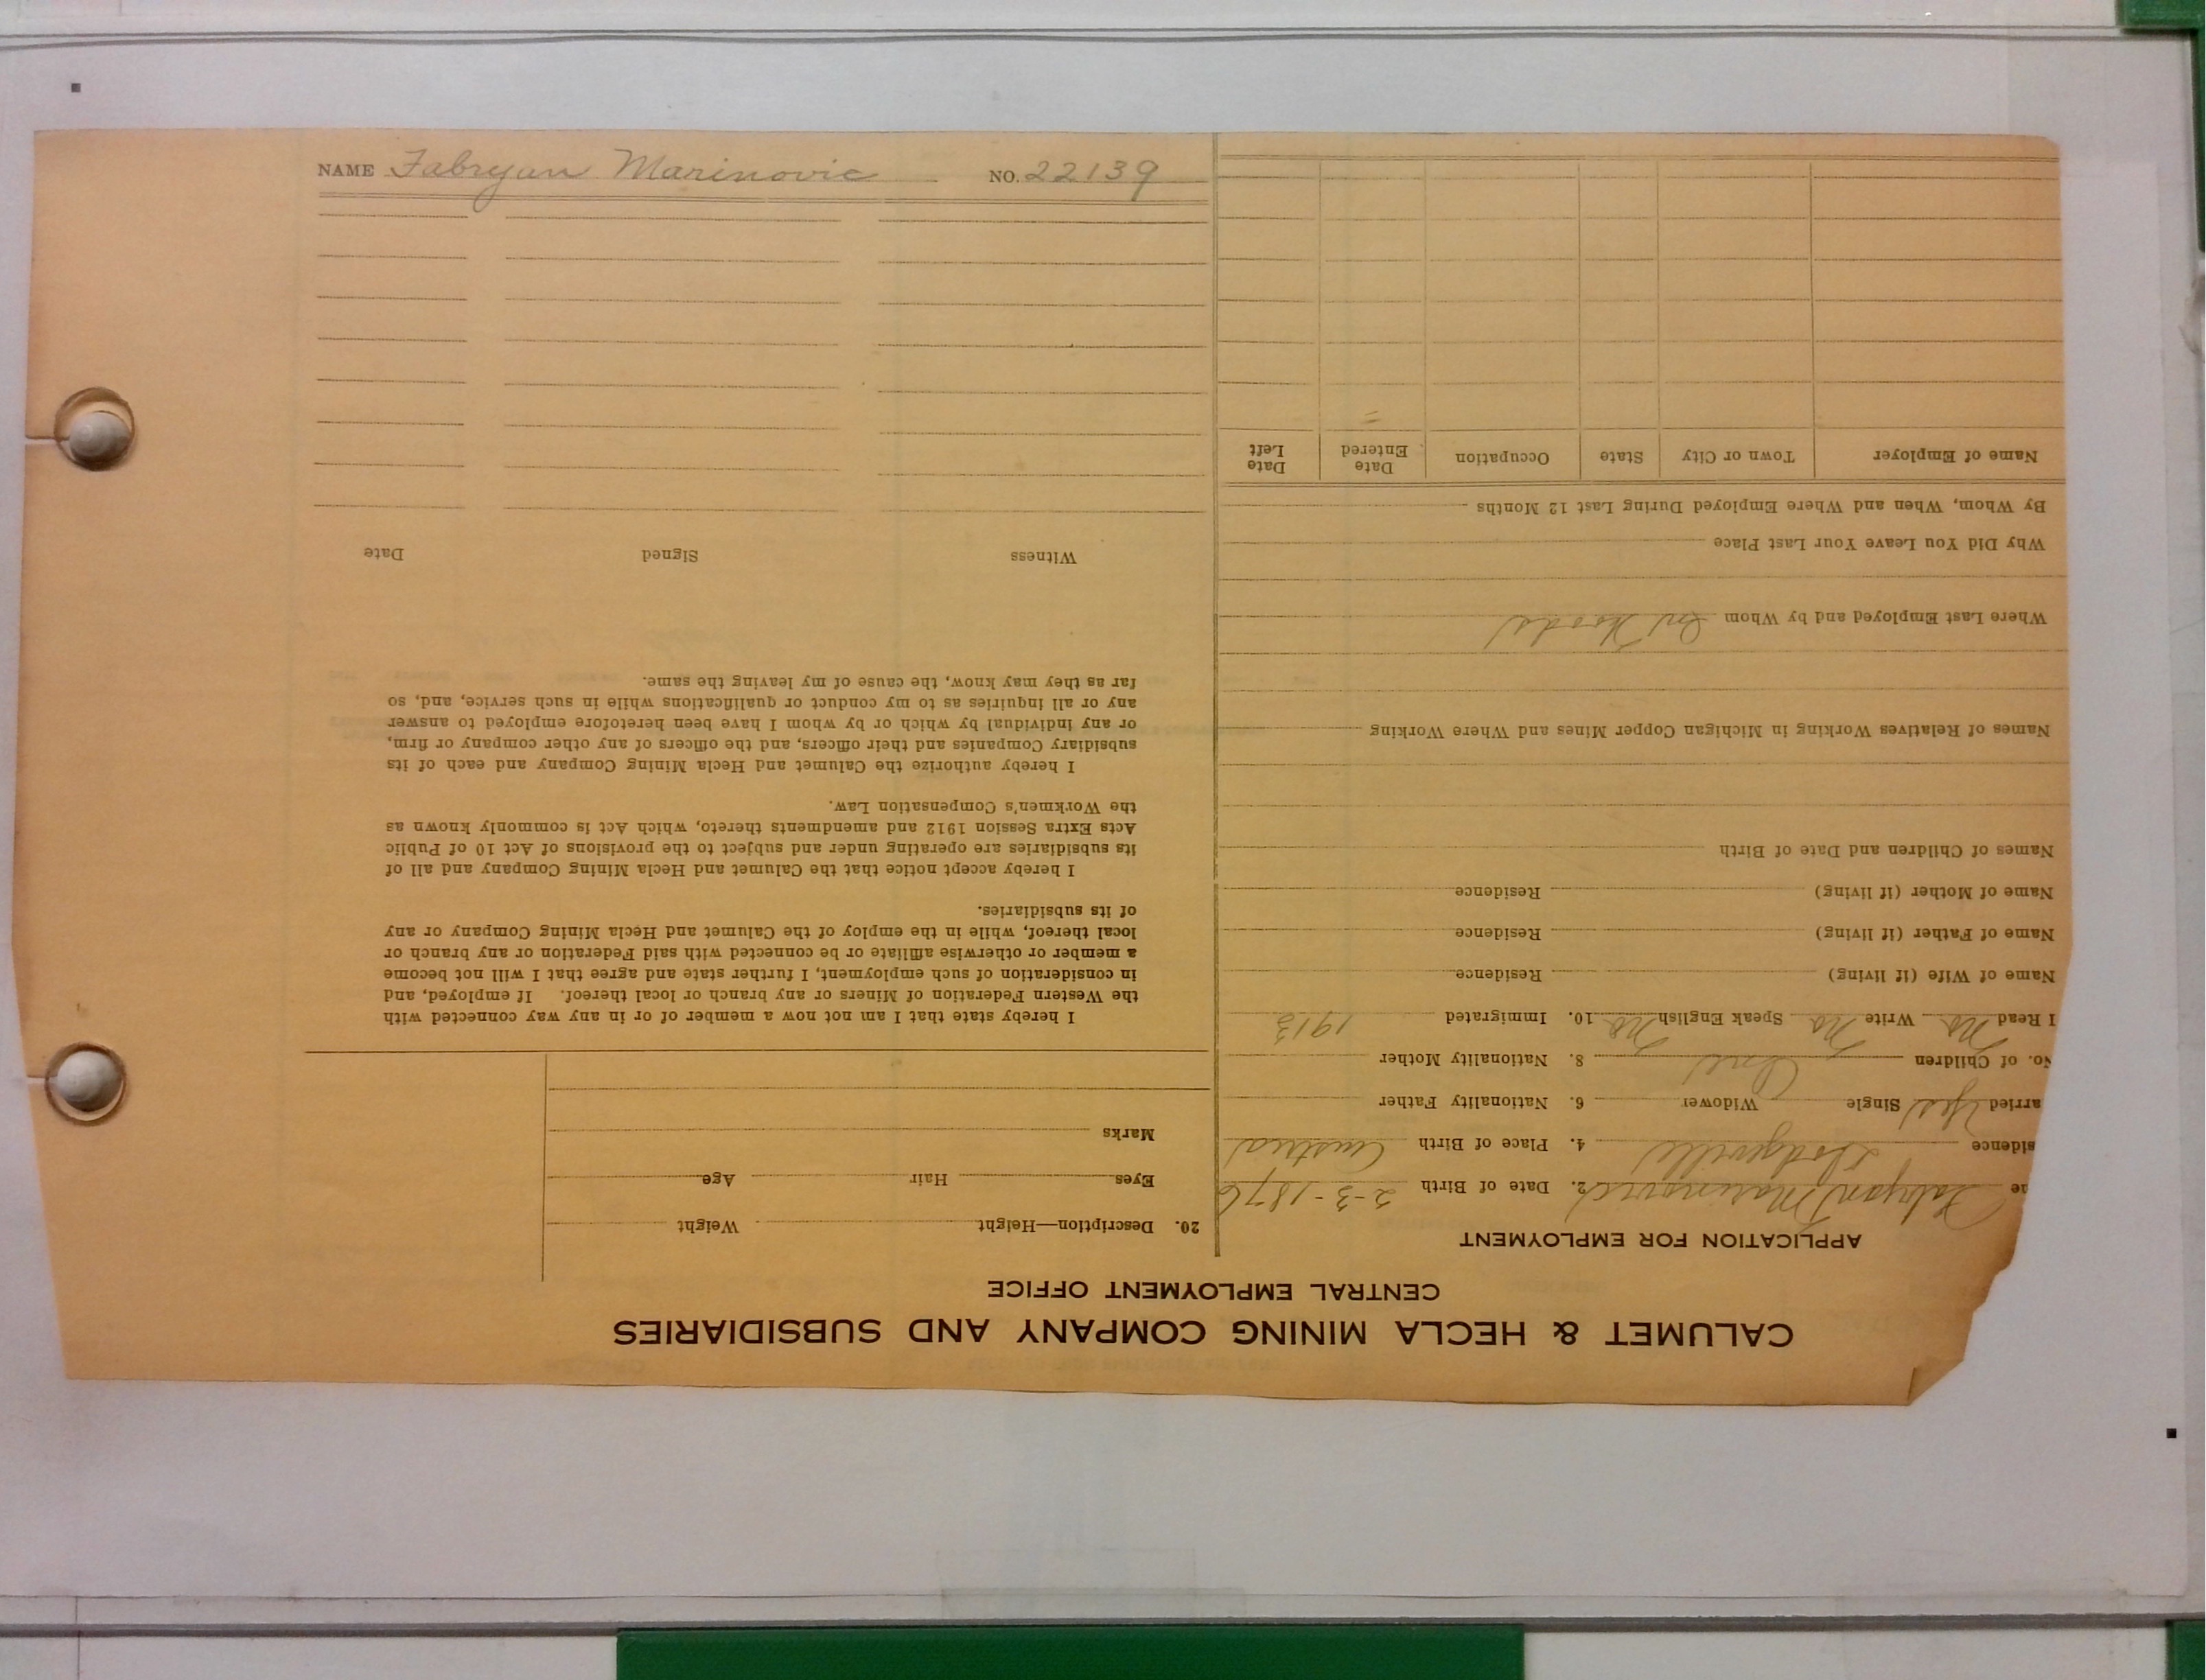 NAME Fabryan Marinovic NO. 22139
CALUMET & HECLA MINING COMPANY AND SUBSIDIARIES
CENTRAL EMPLOYMENT OFFICE
APPLICATION FOR EMPLOYMENT
me Fabryan Marinovic 2. Date of Birth 2-3-1876
sidence Dodgeville 4. Place of Birth Austria
arried Yes Single Widower 6. Nationality Father
No. of Children One 8. Nationality Mother
I Read No Write No Speak English No 10. Immigrated 1913
Name of Wife (if living) Residence
Name of Father (if living) Residence
Name of Mother (if living) Residence
Names of Children and Date of Birth
Names of Relatives Working in Michigan Copper Mines and Where Working
Where Last Employed and by Whom In Woods
Why Did You Leave Your Last Place
By Whom, When and Where Employed During Last 12 Months
Name of Employer Town or City State Occupation Date Entered Date Left
20. Description—Height Weight
Eyes Hair Age
Marks
I hereby state that I am not now a member of or in any way connected with
the Western Federation of Miners or any branch or local thereof. If employed, and
in consideration of such employment, I further state and agree that I will not become
a member or otherwise affiliate or be connected with said Federation or any branch or
local thereof, while in the employ of the Calumet and Hecla Mining Company or any
of its subsidiaries.
I hereby accept notice that the Calumet and Hecla Mining Company and all of
its subsidiaries are operating under and subject to the provisions of Act 10 of Public
Acts Extra Session 1912 and amendments thereto, which Act is commonly known as
the Workmen's Compensation Law.
I hereby authorize the Calumet and Hecla Mining Company and each of its
subsidiary Companies and their officers, and the officers of any other company or firm,
or any individual by which or by whom I have been heretofore employed to answer
any or all inquiries as to my conduct or qualifications while in such service, and, so
far as they may know, the cause of my leaving the same.
Witness Signed Date